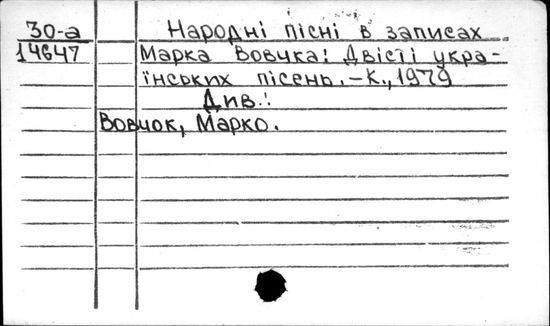 30-а Народні пісні в записах
14647 Марка Вовчка: Двісті укра-
їнських пісень. – К., 1979
Див.:
Вовчок, Марко.